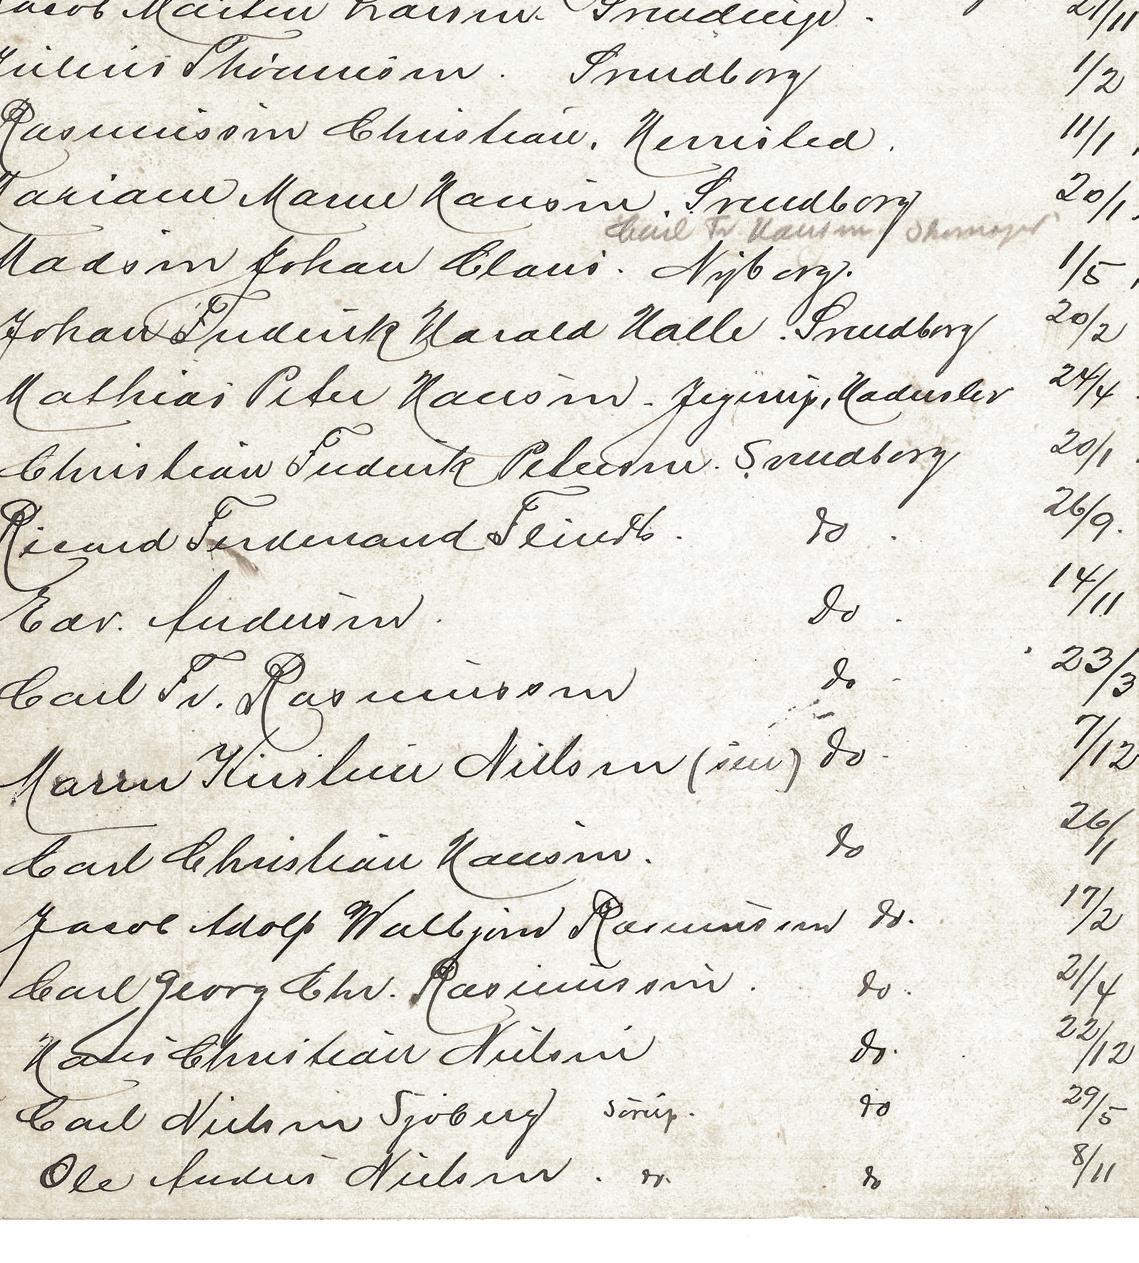 Jacob Martin Larsen. Svendborg. 21/11
Julius Thomsen. Svendborg 1/2
Rasmussen Christian. Herrisled. 11/1
Mariane Marie Hansen. Svendborg 20/1.
Carl Fr Hansen Skomager
Madsen Johan Claus. Nyborg. 1/5
Johan Frederik Harald Halle. Svendborg 20/2
Mathias Peter Hansen. Jegerup, Haderslev 24/4
Christian Frederik Petersen. Svendborg 20/1
Ricard Ferdenand Flindt. do. 26/9.
Edv. Andersen. do. 14/11
Carl Fr. Rasmussen do 23/3
Maren Kirstine Nielsen (sen) do 7/12
Carl Christian Hansen. do 26/1
Jacob Adolf Walbjørn Rasmussen do. 17/2
Carl Georg Chr. Rasmussen. do. 21/4
Hans Christian Nielsen do. 22/12
Carl Nielsen Sjøberg Sørup. do 29/5
Ole Anders Nielsen. do. do 8/11